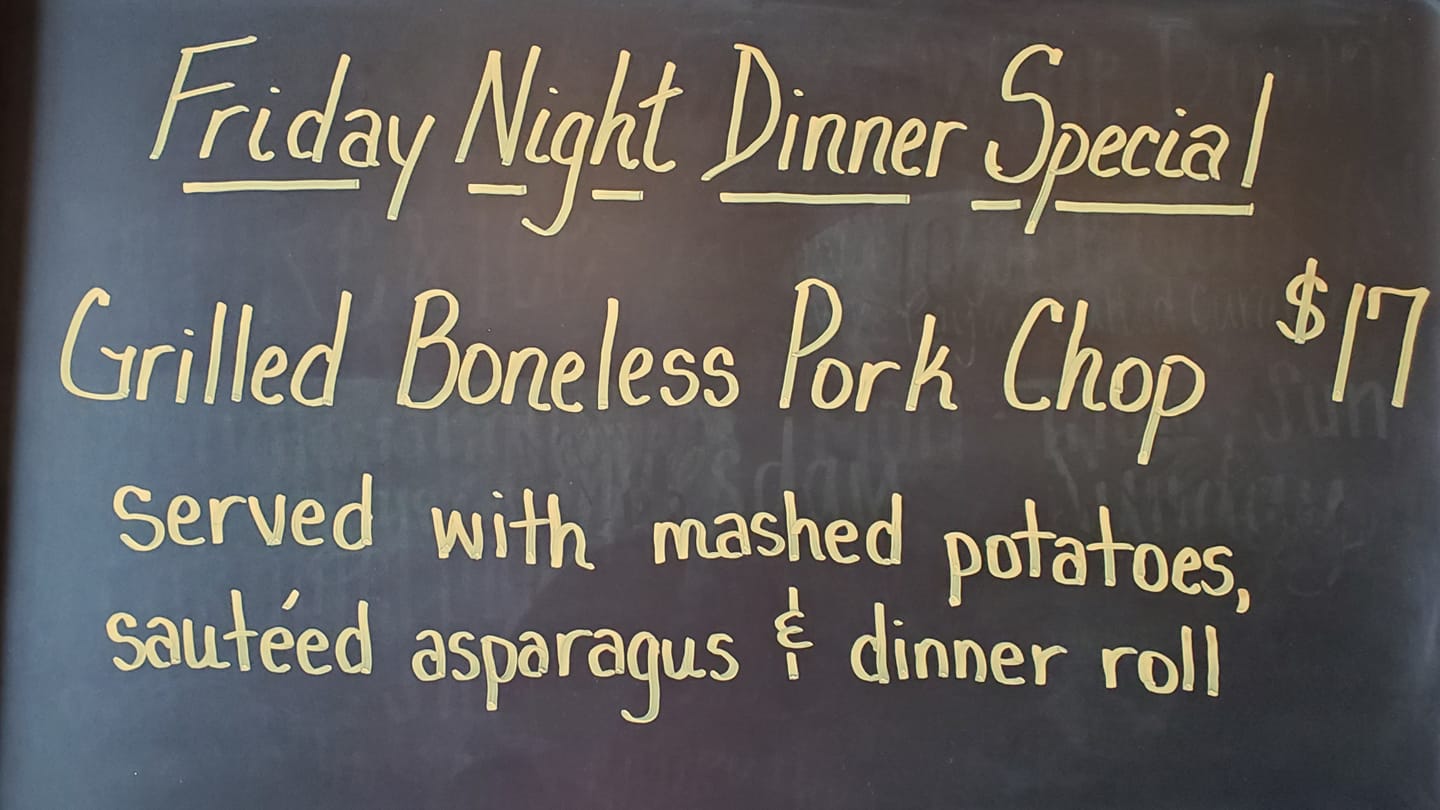 Friday Night Dinner Special
Grilled Boneless Pork Chop $17
served with mashed potatoes,
sautéed asparagus & dinner roll